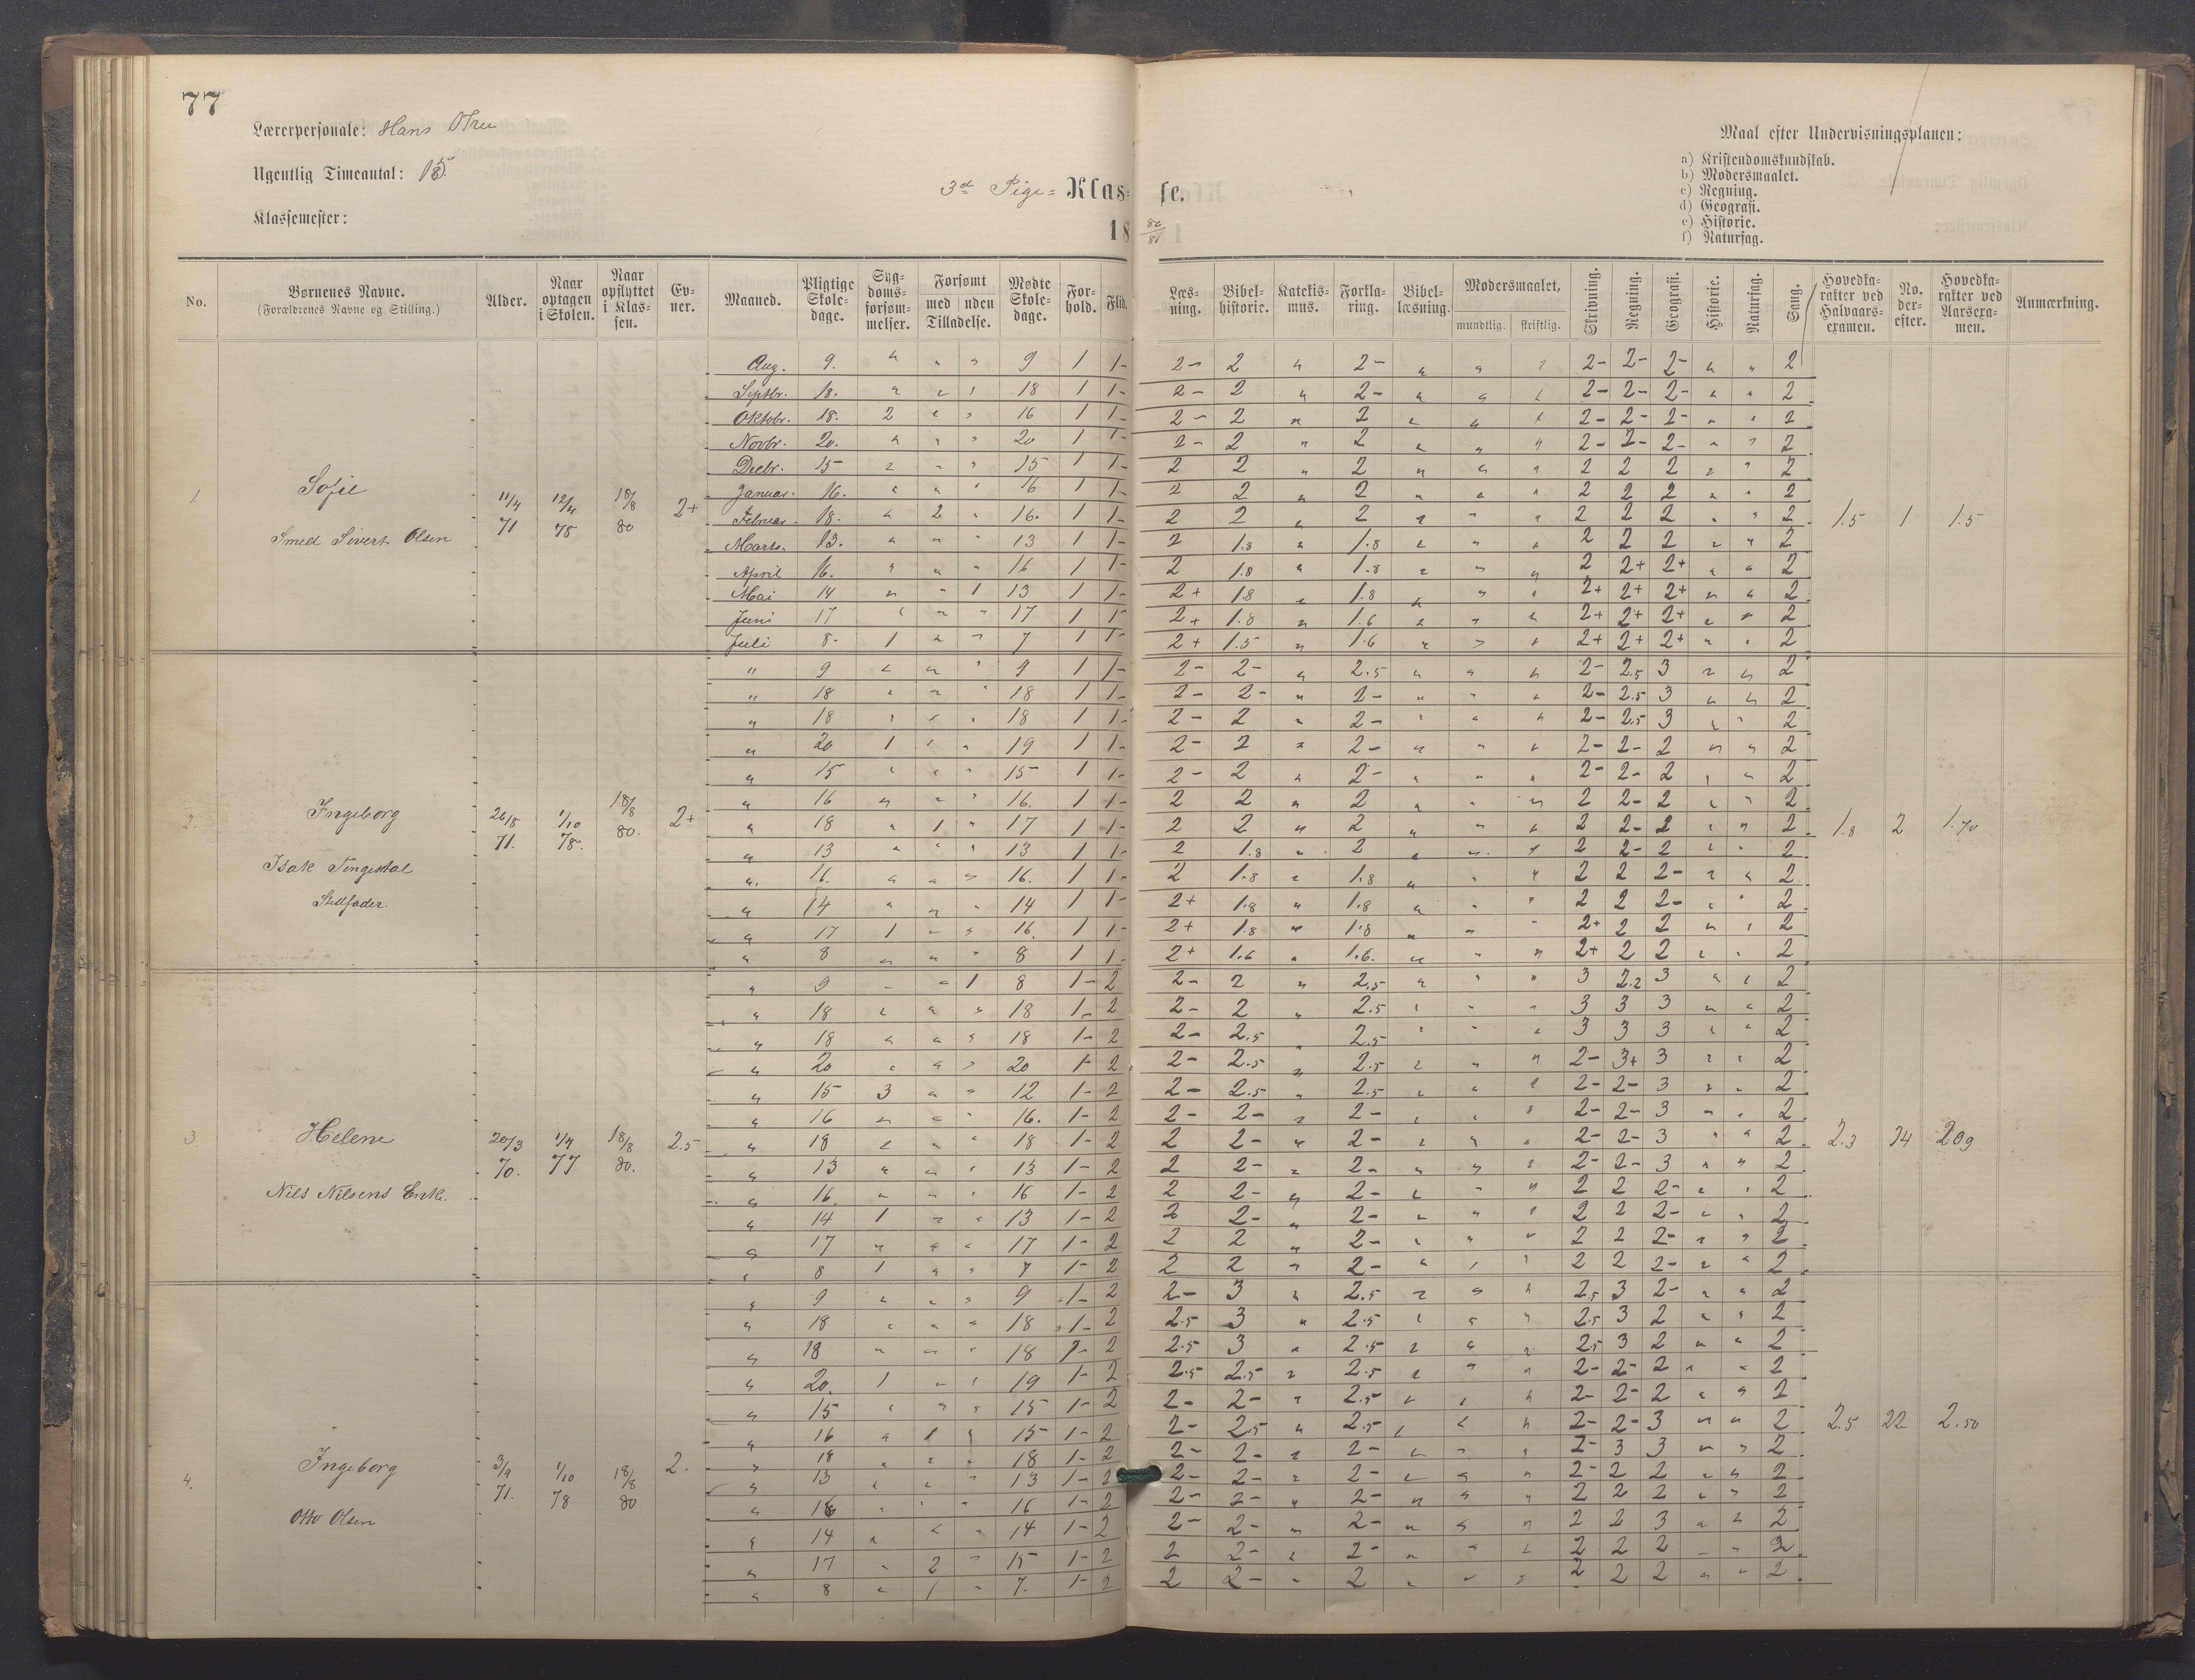 77
Lærerpersonale: Hans
Ugentlig Timeantal: 18.
Klassemester:
3d Pige= Klas= se.
18 80/81
Maal efter Undervisningsplanen:
a) Kristendomskundskab.
b) Modersmaalet.
c) Regning.
d) Geografi.
e) Historie.
f) Naturfag.
No. Børnenes Navne. (Forældrenes Navne og Stilling.) Alder. Naar optagen i Skolen. Naar opflyttet i Klassen. Evner. Maaned. Pligtige Skoledage. Sygdomsforsømmelser. Forsømt med uden Tilladelse. Mødte Skoledage. Forhold. Flid. Læsning. Bibelhistorie. Katekismus. Forklaring. Bibellæsning. Modersmaalet, mundtlig. skriftlig. Skrivning. Regning. Geografi. Historie. Naturfag. Sang. Hovedkarakter ved Halvaarsexamen. No. derefter. Hovedkarakter ved Aarsexamen. Anmærkning.
1. Sofie
Smed Sivert Olsen
11/4 71 12/4 78 18/8 80 2+
Aug. 9. " " " 9 1 1- 2- 2 " 2- " " " 2- 2- 2- " " 2
Septbr. 18. " " " 18 1 1- 2- 2 " 2- " " " 2- 2- 2- " " 2
Oktobr. 18. 2 " " 16 1 1- 2- 2 " 2 " " " 2- 2- 2- " " 2
Novbr. 20. " " " 20 1 1- 2- 2 " 2 " " " 2- 2- 2- " " 2
Decbr. 15 " " " 15 1 1- 2 2 " 2 " " " 2 2 2 " " 2
Januar. 16. " " " 16 1 1- 2 2 " 2 " " " 2 2 2 " " 2
Februar. 18. " 2 " 16. 1 1- 2 2 " 2 " " " 2 2 2 " " 2 1.5 1 1.5
Marts. 13. " " " 13 1 1- 2 1.8 " 1.8 " " " 2 2 2 " " 2
April 16. " " " 16 1 1- 2 1.8 " 1.8 " " " 2 2+ 2+ " " 2
Mai 14 " " 1 13 1 1- 2+ 1.8 " 1.8 " " " 2+ 2+ 2+ " " 2
Juni 17 " " " 17 1 1- 2+ 1.8 " 1.6 " " " 2+ 2+ 2+ " " 2
Juli 8. 1 " " 7 1 1- 2+ 1.5 " 1.6 " " " 2+ 2+ 2+ " " 2
2. Ingeborg
Isak
Stedfader.
26/8 71. 1/10 78. 18/8 80. 2+
" 9 " " " 9 1 1- 2- 2- " 2.5 " " " 2- 2.5 3 " " 2
" 18 " " " 18 1 1- 2- 2- " 2- " " " 2- 2.5 3 " " 2
" 18 " " " 18 1 1- 2- 2 " 2- " " " 2- 2.5 3 " " 2
" 20 1 " " 19 1 1- 2- 2 " 2- " " " 2- 2- 2 " " 2
" 15 " " " 15 1 1- 2- 2 " 2- " " " 2- 2- 2 " " 2
" 16 " " " 16. 1 1- 2 2 " 2 " " " 2 2- 2 " " 2
" 18 " 1 " 17 1 1- 2 2 " 2 " " " 2 2- 2 " " 2 1.8 2 1.70
" 13 " " " 13 1 1- 2 1.8 " 2 " " " 2 2- 2 " " 2
" 16. " " " 16. 1 1- 2 1.8 " 1.8 " " " 2 2 2- " " 2
" 14 " " " 14 1 1- 2+ 1.8 " 1.8 " " " 2 2 2- " " 2
" 17 1 " " 16. 1 1- 2+ 1.8 " 1.8 " " " 2+ 2 2 " " 2
" 8 " " " 8 1 1- 2+ 1.6 " 1.6. " " " 2+ 2 2 " " 2
3 Helene
Nils Nilsens Enke.
20/3 70. 1/4 77 18/8 80. 2.5
" 9 " " 1 8 1- 2 2- 2 " 2.5 " " " 3 2.2 3 " " 2
" 18 " " " 18 1- 2 2- 2 " 2.5 " " " 3 3 3 " " 2
" 18 " " " 18 1- 2 2- 2.5 " 2.5 " " " 3 3 3 " " 2
" 20 " " " 20 1- 2 2- 2.5 " 2.5 " " " 2- 3+ 3 " " 2
" 15 3 " " 12 1- 2 2- 2.5 " 2.5 " " " 2- 2- 3 " " 2
" 16 " " " 16. 1- 2 2- 2- " 2- " " " 2- 2- 3 " " 2
" 18 " " " 18 1- 2 2 2- " 2- " " " 2- 2- 3 " " 2 2.3 14 2.09
" 13 " " " 13 1- 2 2 2- " 2- " " " 2- 2- 3 " " 2
" 16. " " " 16 1- 2 2 2- " 2- " " " 2 2 2- " " 2
" 14 1 " " 13 1- 2 2 2- " 2- " " " 2 2 2- " " 2
" 17 " " " 17 1- 2 2 2 " 2- " " " 2 2 2- " " 2
" 8 1 " " 7 1- 2 2 2 " 2- " " " 2 2 2- " " 2
4. Ingeborg
Otto Olsen
3/9 71. 1/10 78 18/8 80 2.
" 9 " " " 9 1- 2 2- 3 " 2.5 " " " 2.5 3 2- " " 2
" 18 " " " 18 1- 2 2.5 3 " 2.5 " " " 2.5 3 2 " " 2
" 18 " " " 18 1- 2 2.5 3 " 2.5 " " " 2.5 3 2 " " 2
" 20. 1 " " 19 1- 2 2.5 2.5 " 2.5 " " " 2- 2- 2 " " 2
" 15 " " " 15 1- 2 2- 2- " 2.5 " " " 2- 2- 2 " " 2
" 16 " 1 " 15 1- 2 2- 2.5 " 2.5 " " " 2- 2- 3 " " 2 2.5 22 2.50
" 18 " " " 18 1- 2 2- 2- " 2- " " " 2- 3 3 " " 2
" 13 " " " 13 1- 2 2- 2- " 2- " " " 2- 2 2 " " 2
" 16 " " " 16 1- 2 2- 2- " 2- " " " 2 2 2 " " 2
" 14 " " " 14 1- 2 2- 2- " 2- " " " 2 2 3 " " 2
" 17 " 2 " 15 1- 2 2 2- " 2- " " " 2 2 2 " " 2
" 8 " 1 " 7. 1- 2 2 2- " 2 " " " 2 2 2 " " 2